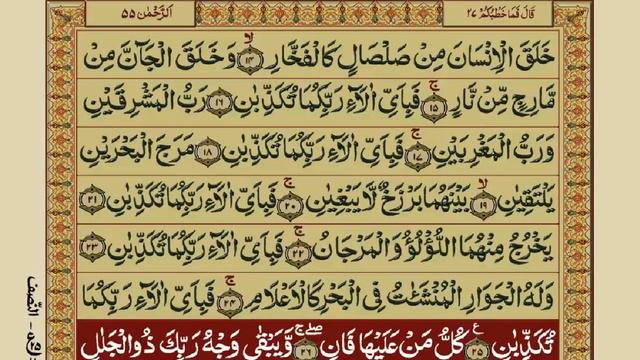 قَالَ فَمَا خَطْبُكُمْ ٢٧
اَلرَّحْمٰن ٥٥
خَلَقَ الْاِنْسَانَ مِنْ صَلْصَالٍ كَالْفَخَّارِ ۙ ١٤ وَخَلَقَ الْجَآنَّ مِنْ
مَّارِجٍ مِّنْ نَّارٍ ۚ ١٥ فَبِاَيِّ اٰلَآءِ رَبِّكُمَا تُكَذِّبٰنِ ١٦ رَبُّ الْمَشْرِقَيْنِ
وَرَبُّ الْمَغْرِبَيْنِ ۚ ١٧ فَبِاَيِّ اٰلَآءِ رَبِّكُمَا تُكَذِّبٰنِ ١٨ مَرَجَ الْبَحْرَيْنِ
يَلْتَقِيٰنِ ۙ ١٩ بَيْنَهُمَا بَرْزَخٌ لَّا يَبْغِيٰنِ ۚ ٢٠ فَبِاَيِّ اٰلَآءِ رَبِّكُمَا تُكَذِّبٰنِ ٢١
يَخْرُجُ مِنْهُمَا اللُّؤْلُؤُ وَالْمَرْجَانُ ۚ ٢٢ فَبِاَيِّ اٰلَآءِ رَبِّكُمَا تُكَذِّبٰنِ ٢٣
وَلَهُ الْجَوَارِ الْمُنْشَئٰتُ فِي الْبَحْرِ كَالْاَعْلَامِ ۚ ٢٤ فَبِاَيِّ اٰلَآءِ رَبِّكُمَا
تُكَذِّبٰنِ ع ٢٥ كُلُّ مَنْ عَلَيْهَا فَانٍ ۖۚ ٢٦ وَّيَبْقٰى وَجْهُ رَبِّكَ ذُو الْجَلٰلِ
النِّصْف